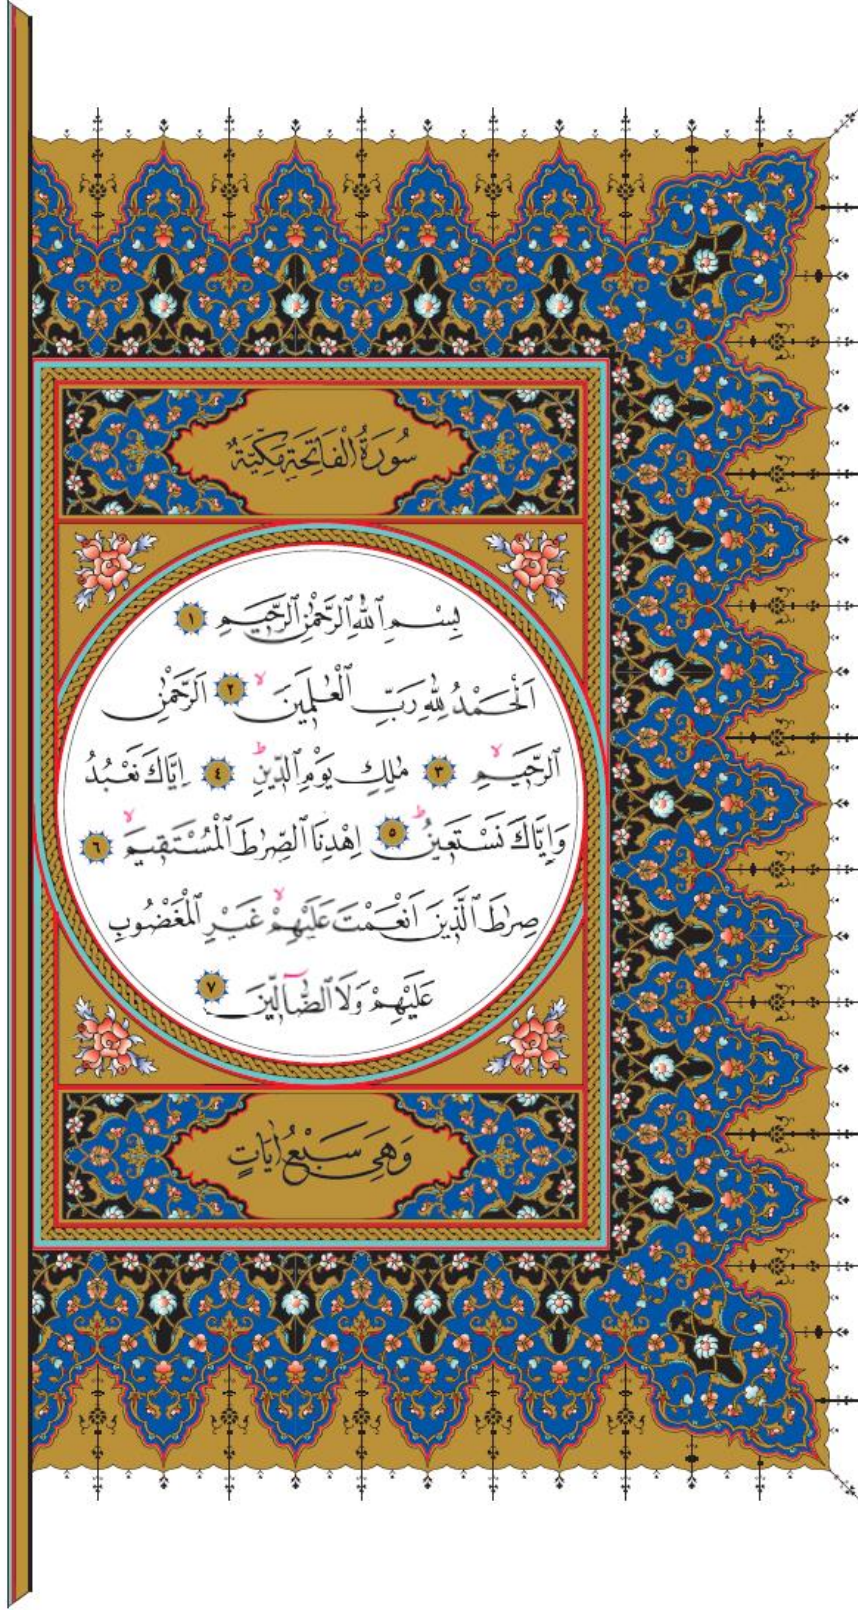 سُورَةُ الْفَاتِحَةِ مَكِّيَّةٌ
بِسْمِ اللّٰهِ الرَّحْمٰنِ الرَّحِيمِ ١
اَلْحَمْدُ لِلّٰهِ رَبِّ الْعٰلَمِينَۙ ٢ اَلرَّحْمٰنِ
الرَّحِيمِۙ ٣ مٰلِكِ يَوْمِ الدِّينِۜ ٤ اِيَّاكَ نَعْبُدُ
وَاِيَّاكَ نَسْتَعِينُۜ ٥ اِهْدِنَا الصِّرٰطَ الْمُسْتَقِيمَۙ ٦
صِرٰطَ الَّذِينَ اَنْعَمْتَ عَلَيْهِمْۙ غَيْرِ الْمَغْضُوبِ
عَلَيْهِمْ وَلَا الضَّٓالِّينَ ٧
وَهِيَ سَبْعُ اٰيَاتٍ